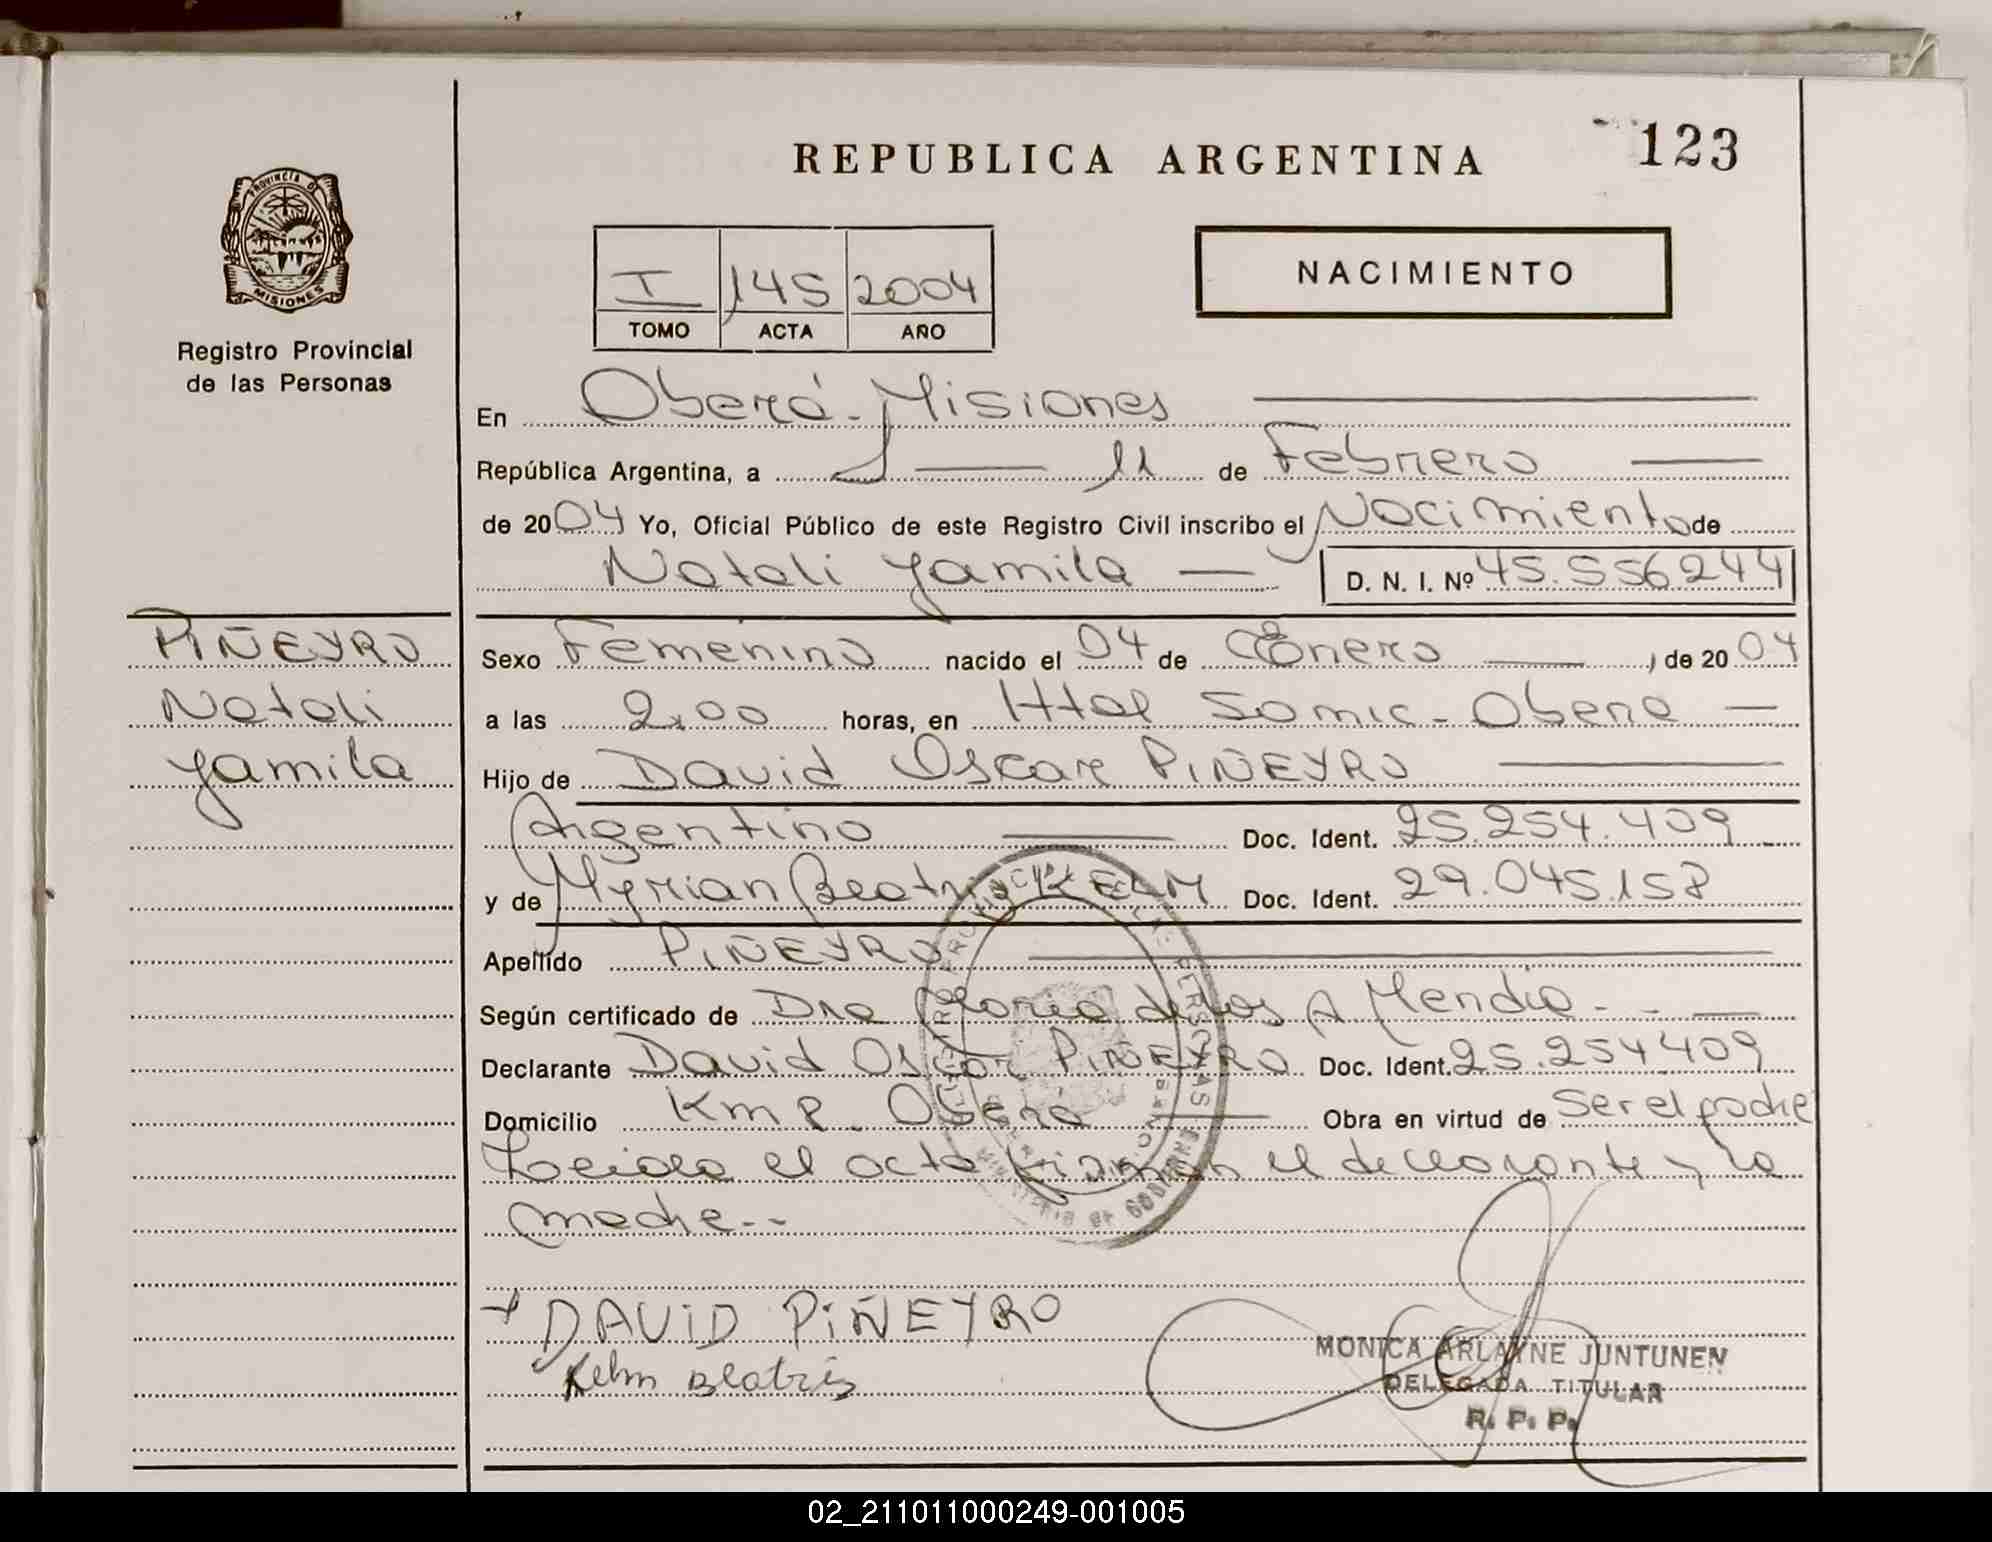 REPUBLICA ARGENTINA
123
PROVINCIA DE
MISIONES
Registro Provincial
de las Personas
I 145 2004
TOMO ACTA AÑO
NACIMIENTO
En Oberá - Misiones
República Argentina, a 11 de Febrero
de 2004 Yo, Oficial Público de este Registro Civil inscribo el Nacimiento de
Natali Yamila D. N. I. Nº 45.556.244
PIÑEYRO
Natali
Yamila
Sexo Femenino nacido el 04 de Enero, de 2004
a las 2,00 horas, en Htal Samic - Oberá
Hijo de David Oscar PIÑEYRO
Argentino Doc. Ident. 25.254.409
y de Myrian Beatriz KELM Doc. Ident. 29.045.158
Apellido PIÑEYRO
Según certificado de Dra María de los A Mendia
Declarante David Oscar PIÑEYRO Doc. Ident. 25.254409
Domicilio Km 8 Oberá Obra en virtud de Ser el padre
Leida el acta firman el declarante y la
madre..
DAVID PIÑEYRO
Kelm Beatris
MONICA ARLAYNE JUNTUNEN
DELEGADA TITULAR
R. P. P.
02_211011000249-001005